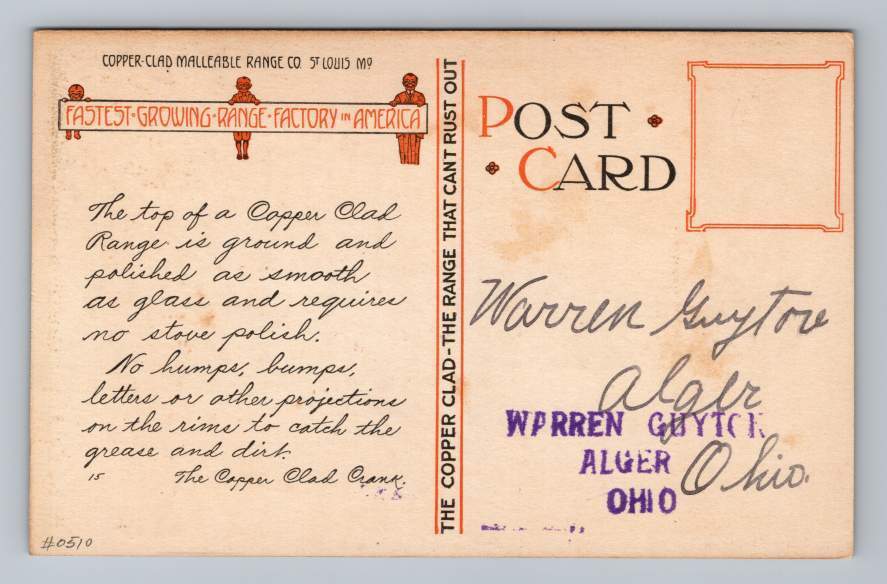 COPPER-CLAD MALLEABLE RANGE CO. ST LOUIS MO
FASTEST·GROWING·RANGE·FACTORY IN AMERICA
The top of a Copper Clad
Range is ground and
polished as smooth
as glass and requires
no stove polish.
No humps, bumps,
letters or other projections
on the rims to catch the
grease and dirt.
15 The Copper Clad Crank.
#0510
THE COPPER CLAD-THE RANGE THAT CANT RUST OUT
POST
CARD
Warren Guyton
Alger
Ohio.
WARREN GUYTON
ALGER
OHIO